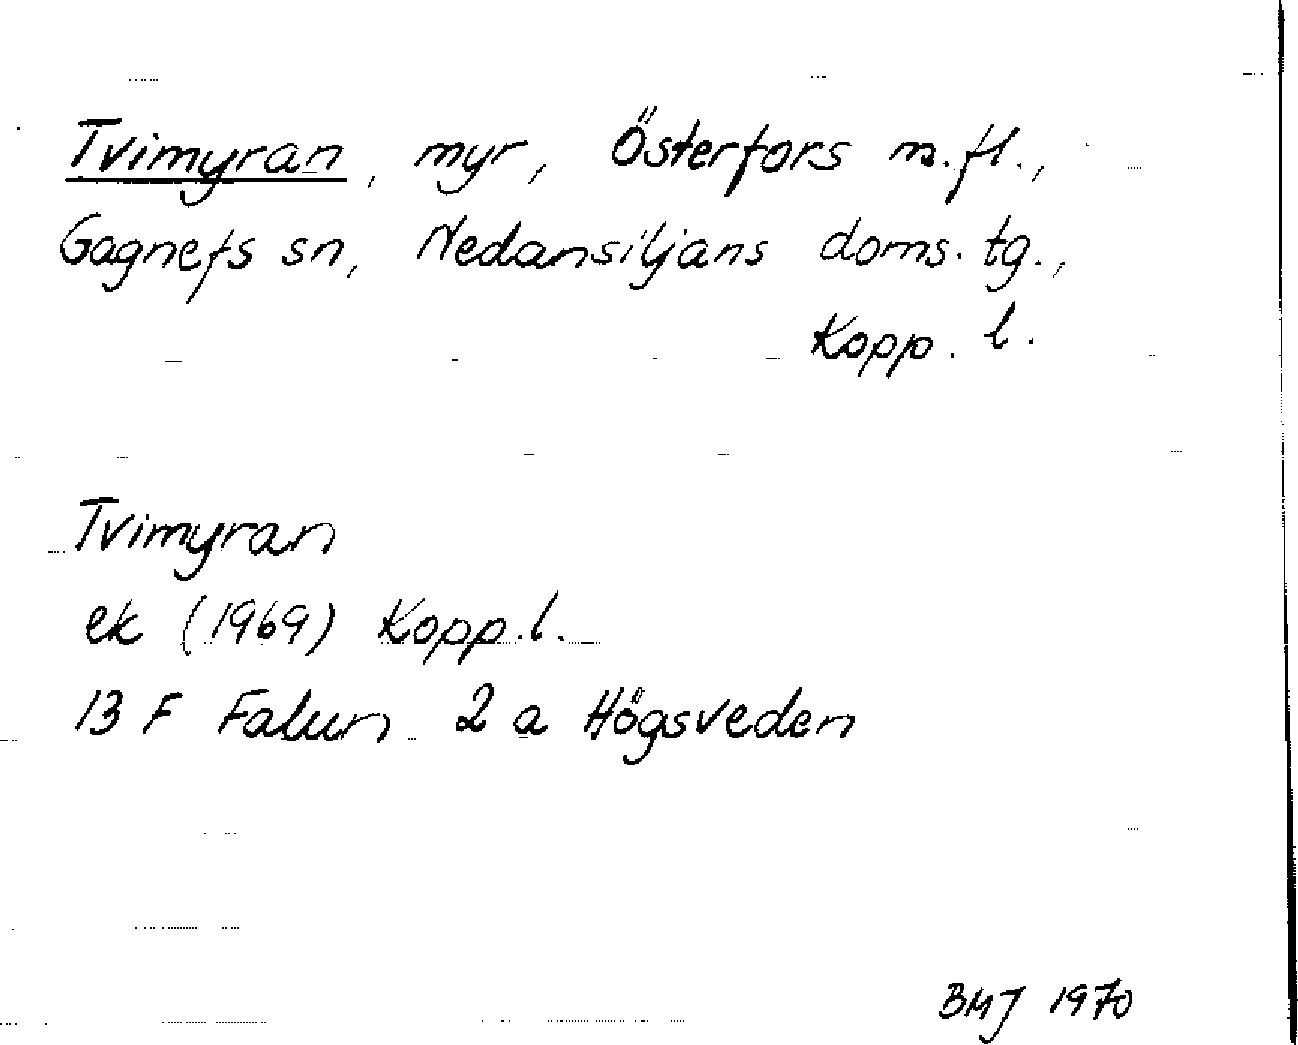 Tvimyran, myr, Österfors m.fl.,
Gagnefs sn, Nedansiljans doms. tg.,
Kopp. l.
Tvimyran
ek (1969) Kopp.l.
13 F Falun 2 a Högsveden
BMJ 1970